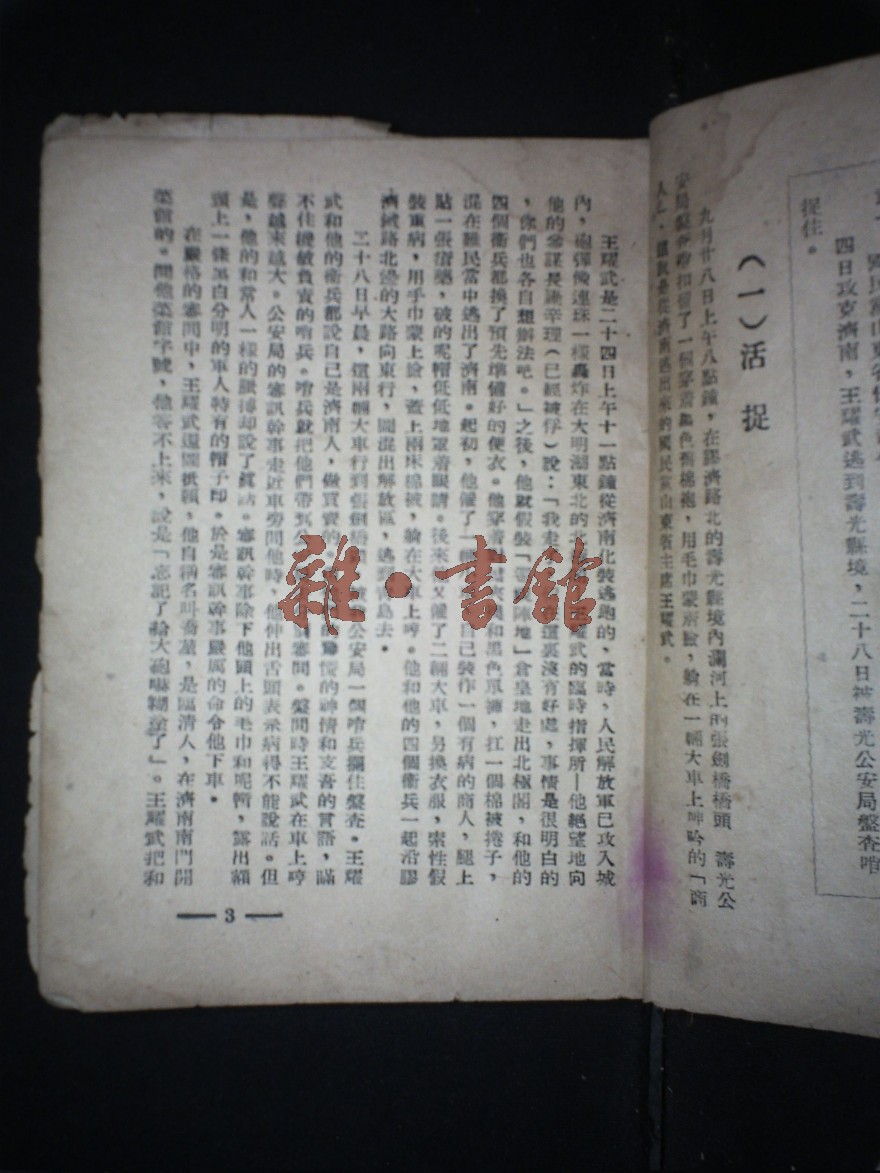 四日攻克濟南，王耀武逃到壽光縣境，二十八日被壽光公安局盤查哨
捉住。
（一）活捉
九月廿八日上午八點鐘，在膠濟路北的壽光縣境內瀰河上的張劍橋橋頭 壽光公
安局盤查哨扣留了一個穿着黑色舊棉袍，用毛巾蒙着臉，躺在一輛大車上呻吟的「商
人」，這就是從濟南逃出來的國民黨山東省主席王耀武。
王耀武是二十四日上午十一點鐘從濟南化裝逃跑的，當時，人民解放軍已攻入城
內，砲彈像連珠一樣轟炸在大明湖東北的北 王耀武的臨時指揮所—他絕望地向
他的參謀長羅辛理（已經被俘）說：「我走 這裏沒有好處，事情是很明白的
，你們也各自想辦法吧。」之後，他就假裝「 陣地」倉皇地走出北極閣，和他的
四個衛兵都換了預先準備好的便衣。他穿着 和黑色單褲，扛一個棉被捲子，
混在難民當中逃出了濟南。起初，他僱了一輛 自己裝作一個有病的商人，腿上
貼一張膏藥，破的呢帽低低地罩着眼睛。後來 又僱了二輛大車，另換衣服，索性假
裝重病，用手巾蒙上臉，蓋上兩床棉被，躺在 車上哼。他和他的四個衛兵一起沿膠
濟鐵路北邊的大路向東行，圖混出解放區，逃 島去。
二十八日早晨，這兩輛大車行到張劍橋 公安局一個哨兵攔住盤查。王耀
武和他的衛兵都說自己是濟南人，做買賣的。 驚慌的神情和支吾的言語，瞞
不住機敏負責的哨兵。哨兵就把他們帶到公 審問。盤問時王耀武在車上哼
聲越來越大。公安局的審訊幹事走近車旁問他時，他伸出舌頭表示病得不能說話。但
是，他的和常人一樣的脈搏却說了眞話。審訊幹事除下他頭上的毛巾和呢帽，露出額
頭上一條黑白分明的軍人特有的帽子印。於是審訊幹事嚴厲的命令他下車。
在嚴格的審問中，王耀武還圖抵賴，他自稱名叫喬坡，是臨清人，在濟南南門開
菜館的。問他菜館字號，他答不上來，說是「忘記了給大砲嚇糊塗了」。王耀武把和
— 3 —
雜·書館